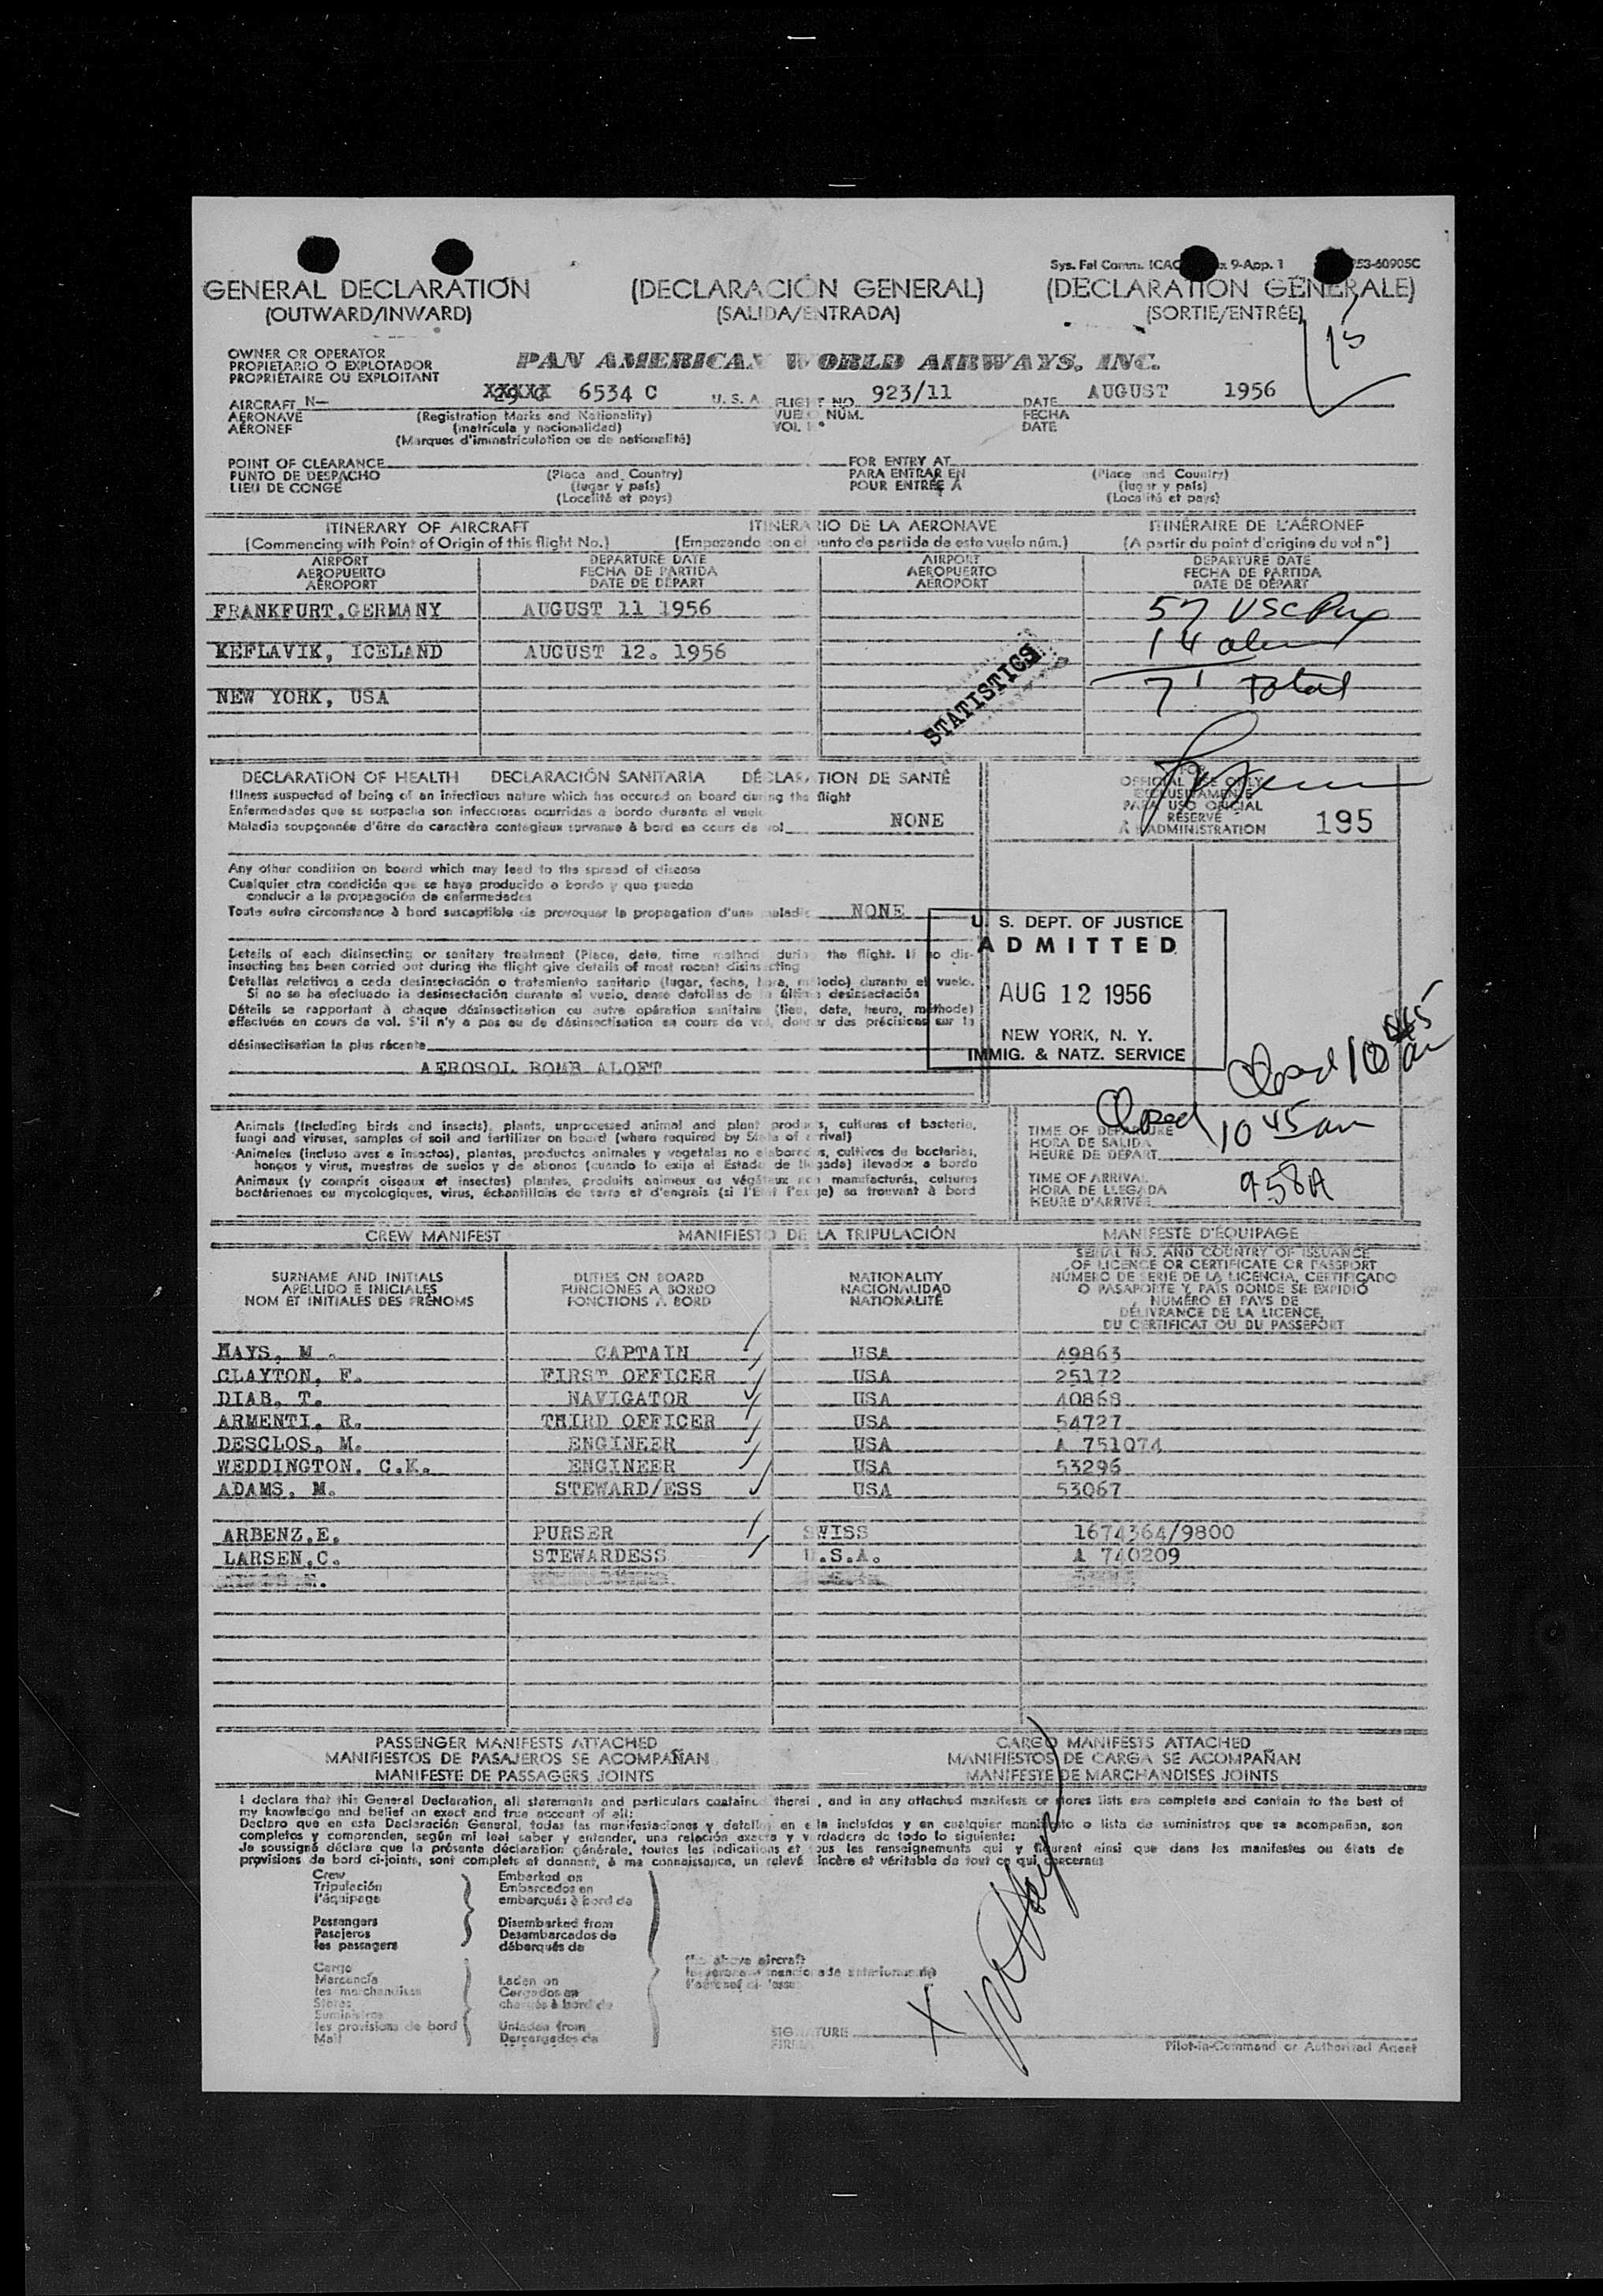 Sys. Fal Comm. ICAO 9-App. 1 53-60905C
GENERAL DECLARATION (DECLARACIÓN GENERAL) (DECLARATION GÉNÉRALE)
(OUTWARD/INWARD) (SALIDA/ENTRADA) (SORTIE/ENTRÉE)
13
OWNER OR OPERATOR
PROPIETARIO O EXPLOTADOR
PROPRIÉTAIRE OU EXPLOITANT
PAN AMERICAN WORLD AIRWAYS, INC.
AIRCRAFT N- 6534 C U. S. A. FLIGHT NO. 923/11 DATE AUGUST 1956
AERONAVE (Registration Marks and Nationality) VUELO NÚM. FECHA
AÉRONEF (matrícula y nacionalidad) VOL N° DATE
(Marques d'immatriculation ou de nationalité)
POINT OF CLEARANCE FOR ENTRY AT
PUNTO DE DESPACHO (Place and Country) PARA ENTRAR EN (Place and Country)
LIEU DE CONGÉ (lugar y país) POUR ENTRÉE À (lugar y país)
(Localité et pays) (Localité et pays)
ITINERARY OF AIRCRAFT ITINERARIO DE LA AERONAVE ITINÉRAIRE DE L'AÉRONEF
(Commencing with Point of Origin of this flight No.) (Empezando con el punto de partida de este vuelo núm.) (A partir du point d'origine du vol n°)
AIRPORT DEPARTURE DATE AIRPORT DEPARTURE DATE
AEROPUERTO FECHA DE PARTIDA AEROPUERTO FECHA DE PARTIDA
AÉROPORT DATE DE DÉPART AÉROPORT DATE DE DÉPART
FRANKFURT,GERMANY AUGUST 11 1956 57 USC Pax
KEFLAVIK, ICELAND AUGUST 12. 1956 14 alien
NEW YORK, USA 71 Total
STATISTICS
DECLARATION OF HEALTH DECLARACIÓN SANITARIA DÉCLARATION DE SANTÉ
Illness suspected of being of an infectious nature which has occured on board during the flight
Enfermedades que se sospecha son infecciozas ocurridas a bordo durante el vuelo
Maladie soupçonnée d'être de caractère contagieux survenue à bord en cours de vol NONE
FOR
OFFICIAL USE ONLY
EXCLUSIVAMENTE
PARA USO OFICIAL
RÉSERVÉ
À L'ADMINISTRATION 195
Any other condition on board which may lead to the spread of disease
Cualquier otra condición que se haya producido a bordo y que pueda
conducir a la propagación de enfermedades
Toute autre circonstance à bord susceptible de provoquer la propagation d'une maladie NONE
Details of each disinsecting or sanitary treatment (Place, date, time method) during the flight. If no dis-
insecting has been carried out during the flight give details of most recent disinsecting
Detalles relativos a cada desinsectación o tratamiento sanitario (lugar, fecha, hora, método) durante el vuelo.
Si no se ha efectuado la desinsectación durante el vuelo, dense detalles de la última desinsectación
Détails se rapportant à chaque désinsectisation ou autre opération sanitaire (lieu, date, heure, méthode)
effectuée en cours de vol. S'il n'y a pas eu de désinsectisation en cours de vol, donner des précisions sur la
désinsectisation la plus récente
AEROSOL BOMB ALOFT
U. S. DEPT. OF JUSTICE
ADMITTED
AUG 12 1956
NEW YORK, N. Y.
IMMIG. & NATZ. SERVICE
Closed 10 45 am
Closed 10 45 am
Animals (including birds and insects), plants, unprocessed animal and plant products, cultures of bacteria,
fungi and viruses, samples of soil and fertilizer on board (where required by State of arrival)
Animales (incluso aves e insectos), plantas, productos animales y vegetales no elaborados, cultivos de bacterias,
hongos y virus, muestras de suelos y de abonos (cuando lo exija el Estado de llegada) llevados a bordo
Animaux (y compris oiseaux et insectes) plantes, produits animaux ou végétaux non manufacturés, cultures
bactériennes ou mycologiques, virus, échantillons de terre et d'engrais (si l'État l'exige) se trouvant à bord
TIME OF DEPARTURE
HORA DE SALIDA
HEURE DE DÉPART
TIME OF ARRIVAL
HORA DE LLEGADA
HEURE D'ARRIVÉE 958A
CREW MANIFEST MANIFIESTO DE LA TRIPULACIÓN MANIFESTE D'ÉQUIPAGE
SURNAME AND INITIALS
APELLIDO E INICIALES
NOM ET INITIALES DES PRÉNOMS
DUTIES ON BOARD
FUNCIONES A BORDO
FONCTIONS À BORD
NATIONALITY
NACIONALIDAD
NATIONALITÉ
SERIAL NO. AND COUNTRY OF ISSUANCE
OF LICENCE OR CERTIFICATE OR PASSPORT
NÚMERO DE SERIE DE LA LICENCIA, CERTIFICADO
O PASAPORTE Y PAÍS DONDE SE EXPIDIÓ
NUMÉRO ET PAYS DE
DÉLIVRANCE DE LA LICENCE,
DU CERTIFICAT OU DU PASSEPORT
HAYS, M . CAPTAIN USA 49863
CLAYTON, F. FIRST OFFICER USA 25172
DIAB, T. NAVIGATOR USA 40868
ARMENTI, R. THIRD OFFICER USA 54727
DESCLOS, M. ENGINEER USA A 751074
WEDDINGTON, C.K. ENGINEER USA 53296
ADAMS, M. STEWARD/ESS USA 53067
ARBENZ,E. PURSER SWISS 1674364/9800
LARSEN,C. STEWARDESS U.S.A. A 740209
PASSENGER MANIFESTS ATTACHED CARGO MANIFESTS ATTACHED
MANIFIESTOS DE PASAJEROS SE ACOMPAÑAN MANIFIESTOS DE CARGA SE ACOMPAÑAN
MANIFESTE DE PASSAGERS JOINTS MANIFESTE DE MARCHANDISES JOINTS
I declare that this General Declaration, all statements and particulars contained therein, and in any attached manifests or stores lists are complete and contain to the best of
my knowledge and belief an exact and true account of all:
Declaro que en esta Declaración General, todas las manifestaciones y detalles en ella incluídos y en cualquier manifiesto o lista de suministros que se acompañan, son
completos y comprenden, según mi leal saber y entender, una relación exacta y verdadera de todo lo siguiente:
Je soussigné déclare que la présente déclaration générale, toutes les indications et tous les renseignements qui y figurent ainsi que dans les manifestes ou états de
provisions de bord ci-joints, sont complets et donnent, à ma connaissance, un relevé sincère et véritable de tout ce qui concerne:
Crew Embarked on
Tripulación Embarcados en
l'équipage embarqués à bord de
Passengers Disembarked from
Pasajeros Desembarcados de
les passagers débarqués de
Cargo the above aircraft
Mercancía Laden on la aeronave mencionada anteriormente
les marchandises Cargados en l'aéronef ci-dessus
Stores chargés à bord de
Suministros
les provisions de bord Unladen from
Mail Descargados de
SIGNATURE X
FIRMA Pilot-in-Command or Authorized Agent